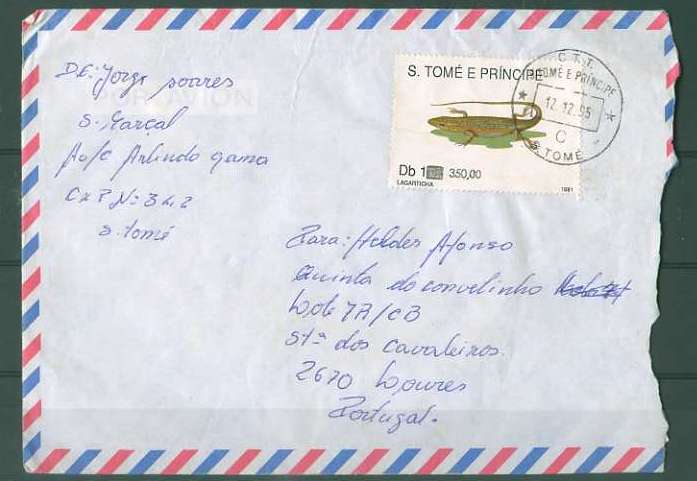 DE: Jorge soares
PAR AVION
S. Marçal
A o/c Arlindo gama
CxP Nº 342
S. tomé
S. TOMÉ E PRÍNCIPE
Db 1 350,00
LAGARTICHA
1991
C.T.T.
S. TOMÉ E PRÍNCIPE
12.12.95
C
S. TOMÉ
Para: Helder Afonso
Quinta do conventinho
Lote 7A/CB
Stª dos cavaleiros
2670 Loures
Portugal.